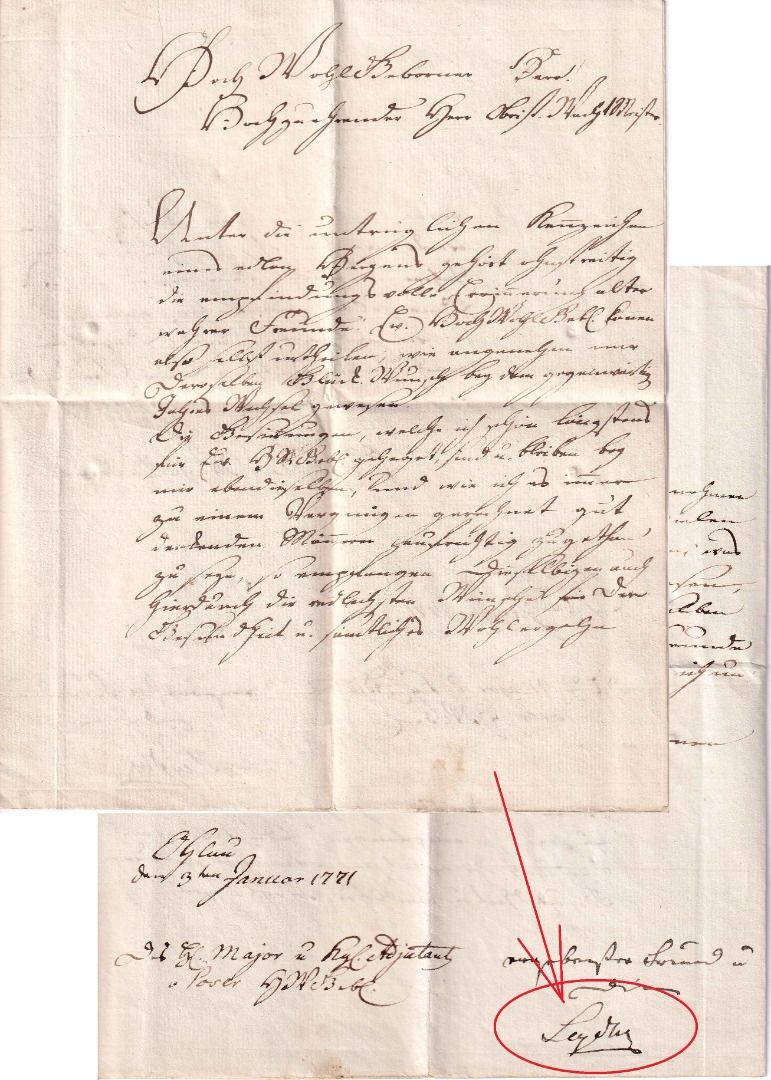 Hoch Wohl Geborner Herr!
Hochzuehrender Herr Obrist Wacht Meister
Unter die untrüglichen Kennzeichen
eines edlen Herzens gehört ohnstreitig
die empfindungsvolle Erinnerung alter
wahrer Freunde. Ew. HochWohlGeb. können
also selbst urtheilen, wie angenehm mir
Deroselben Glück Wunsch bey dem gegenwärtig
Jahres Wechsel gewesen.
Die Gesinungen, welche ich schon längstens
für Ew. HWGeb. geheget, sind u. bleiben bey
mir ebendieselben, und wie ich es immer
zu einem Vergnügen gerechnet gut
denkenden Männern aufrichtig zugethan
zu seyn, so empfangen Dieselbigen auch
hierdurch die redlichsten Wünsche für Dero
Gesundheit u. sämtliches Wohlergehn
nehmen
was
eunde
Ohlau
den 3ten Januar 1771
Des H. Major u Kgl. Adjutant
v Poser HWGeb.
ergebenster Freund u